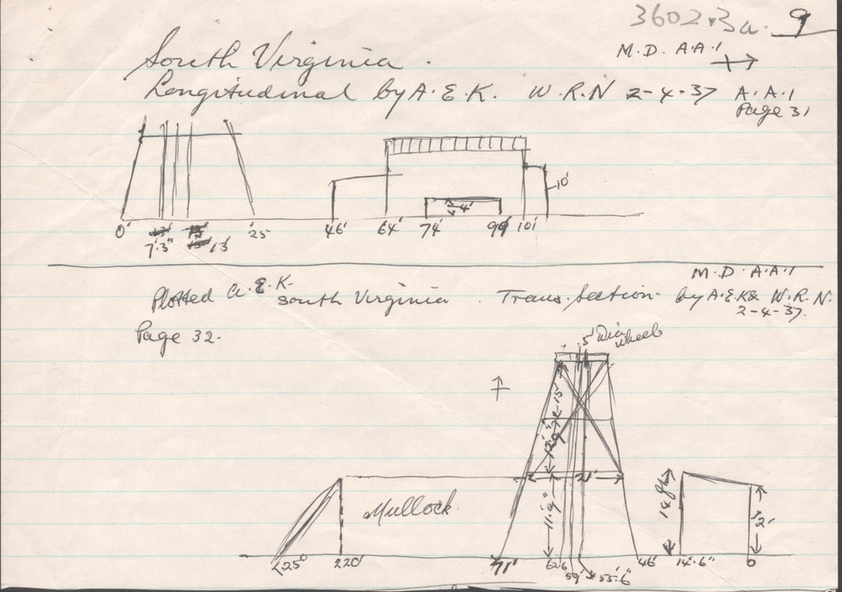 3602 3a. 9
M.D. A.A.1
South Virginia.
Longitudinal by A.E.K. W.R.N 2-4-37 A.A.1
Page 31
10'
4'
0' 7'.3" 13' 25' 46' 64' 74' 99' 101'
M.D. A.A.1
Plotted A.E.K. South Virginia. Trans. Section by A.E.K & W.R.N.
2-4-37.
Page 32.
5' Dia wheels
15'
21'
Mullock
11'.9"
12'
125° 220' 71' 62.6 59' 55'.6" 46' 14'.6" 0